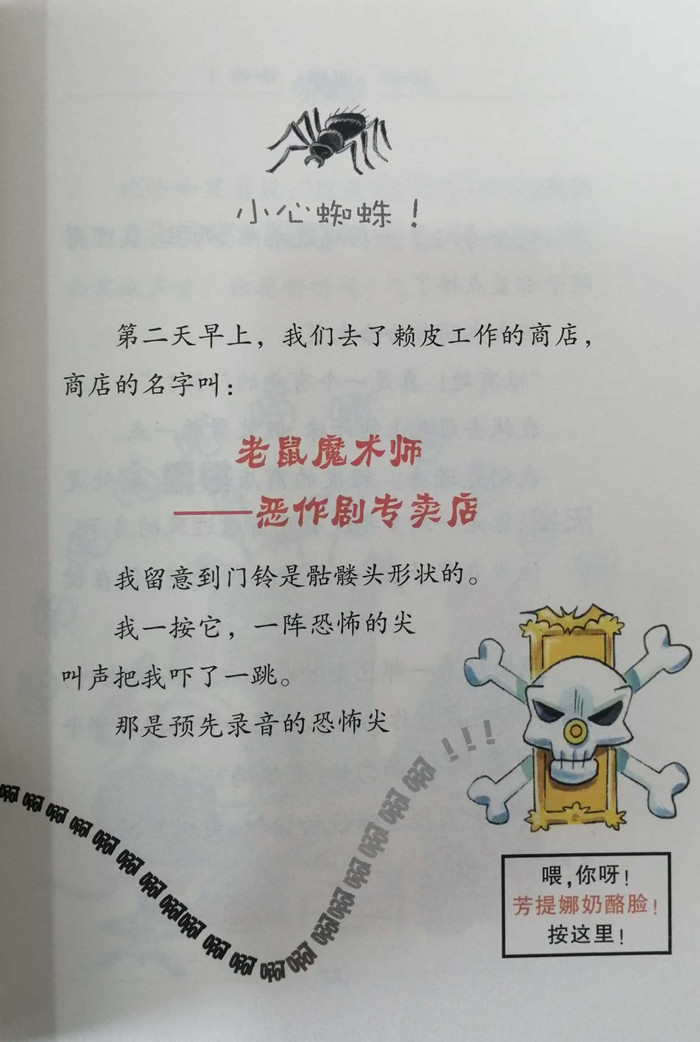 小心蜘蛛！
第二天早上，我们去了赖皮工作的商店，
商店的名字叫：
老鼠魔术师
——恶作剧专卖店
我留意到门铃是骷髅头形状的。
我一按它，一阵恐怖的尖
叫声把我吓了一跳。
那是预先录音的恐怖尖
啊啊啊啊啊啊啊啊啊啊啊啊啊啊啊啊啊啊啊啊啊啊啊啊！！！
喂，你呀！
芳提娜奶酪脸！
按这里！